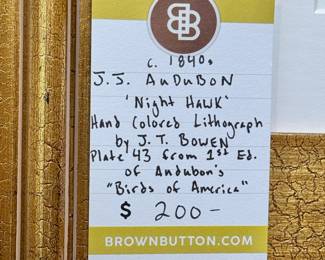 BB
c. 1840s
J.J. AUDUBON
'Night Hawk'
Hand Colored Lithograph
by J.T. BOWEN
Plate 43 from 1st Ed.
of Audubon's
"Birds of America"
$ 200-
BROWNBUTTON.COM